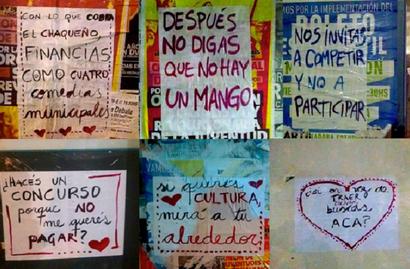 CON LO QUE COBRA
EL CHAQUEÑO,
FINANCIAS
COMO CUATRO
comedias
municipales
DESPUÉS
NO DIGAS
QUE NO HAY
UN MANGO
POR LA IMPLEMENTACIÓN DEL
BOLETO
NOS INVITAS
A COMPETIR
Y NO A
PARTICIPAR
¿HACÉS UN
CONCURSO
porque NO
me querés
PAGAR?
si querés
CULTURA,
mirá a tu
alrededor
en vez de
TRAER
buscás
ACA?